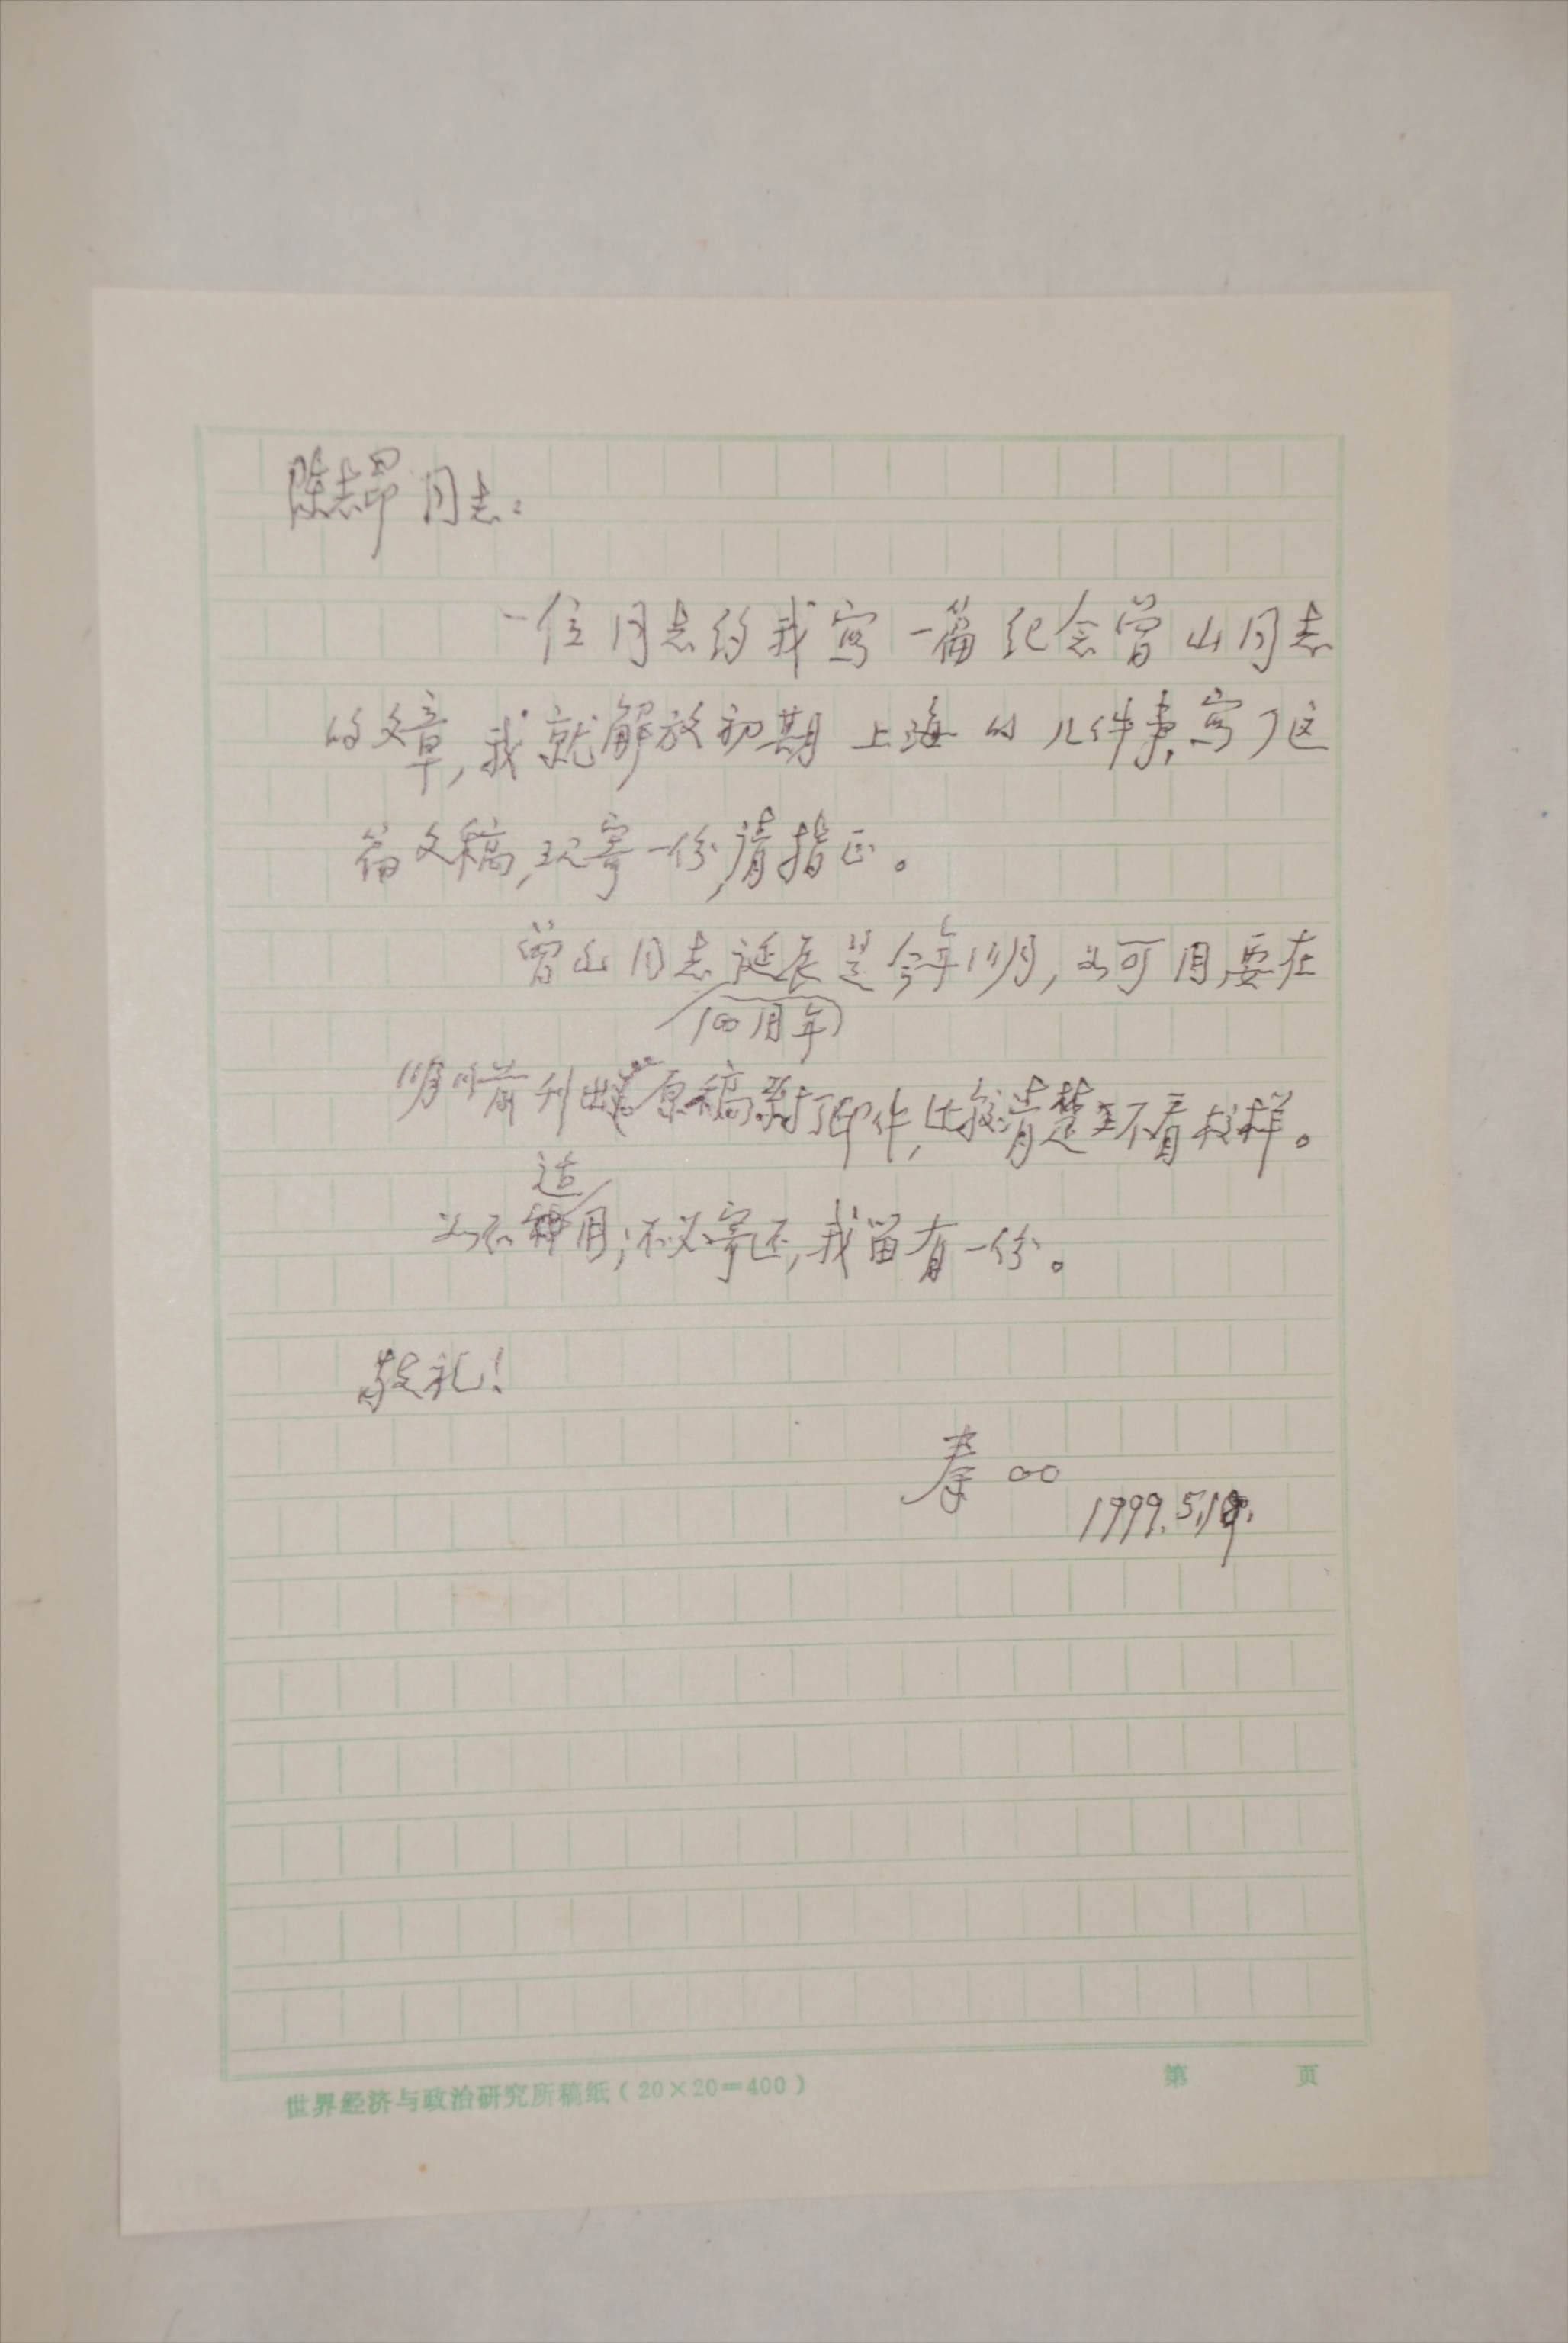 陈志昂同志：
一位同志约我写一篇纪念曾山同志
的文章，我就解放初期上海的几件事，写了这
篇文稿，现寄一份，请指正。
曾山同志诞辰是今年11月，如可用，要在
100周年
11月以前刊出。原稿系打印件，比较清楚，不看校样。
适
如不用；不必寄还，我留有一份。
敬礼！
1999.5.19.
世界经济与政治研究所稿纸（20×20=400） 第 页